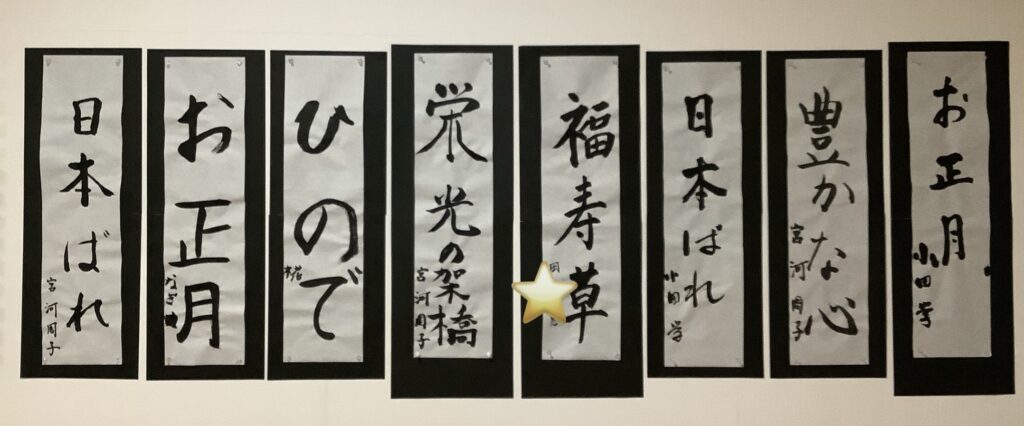 お正月
小田学
豊かな心
宮河周子
日本ばれ
小田学
福寿草
栄光の架橋
宮河周子
ひので
お正月
なぎ
日本ばれ
宮河周子